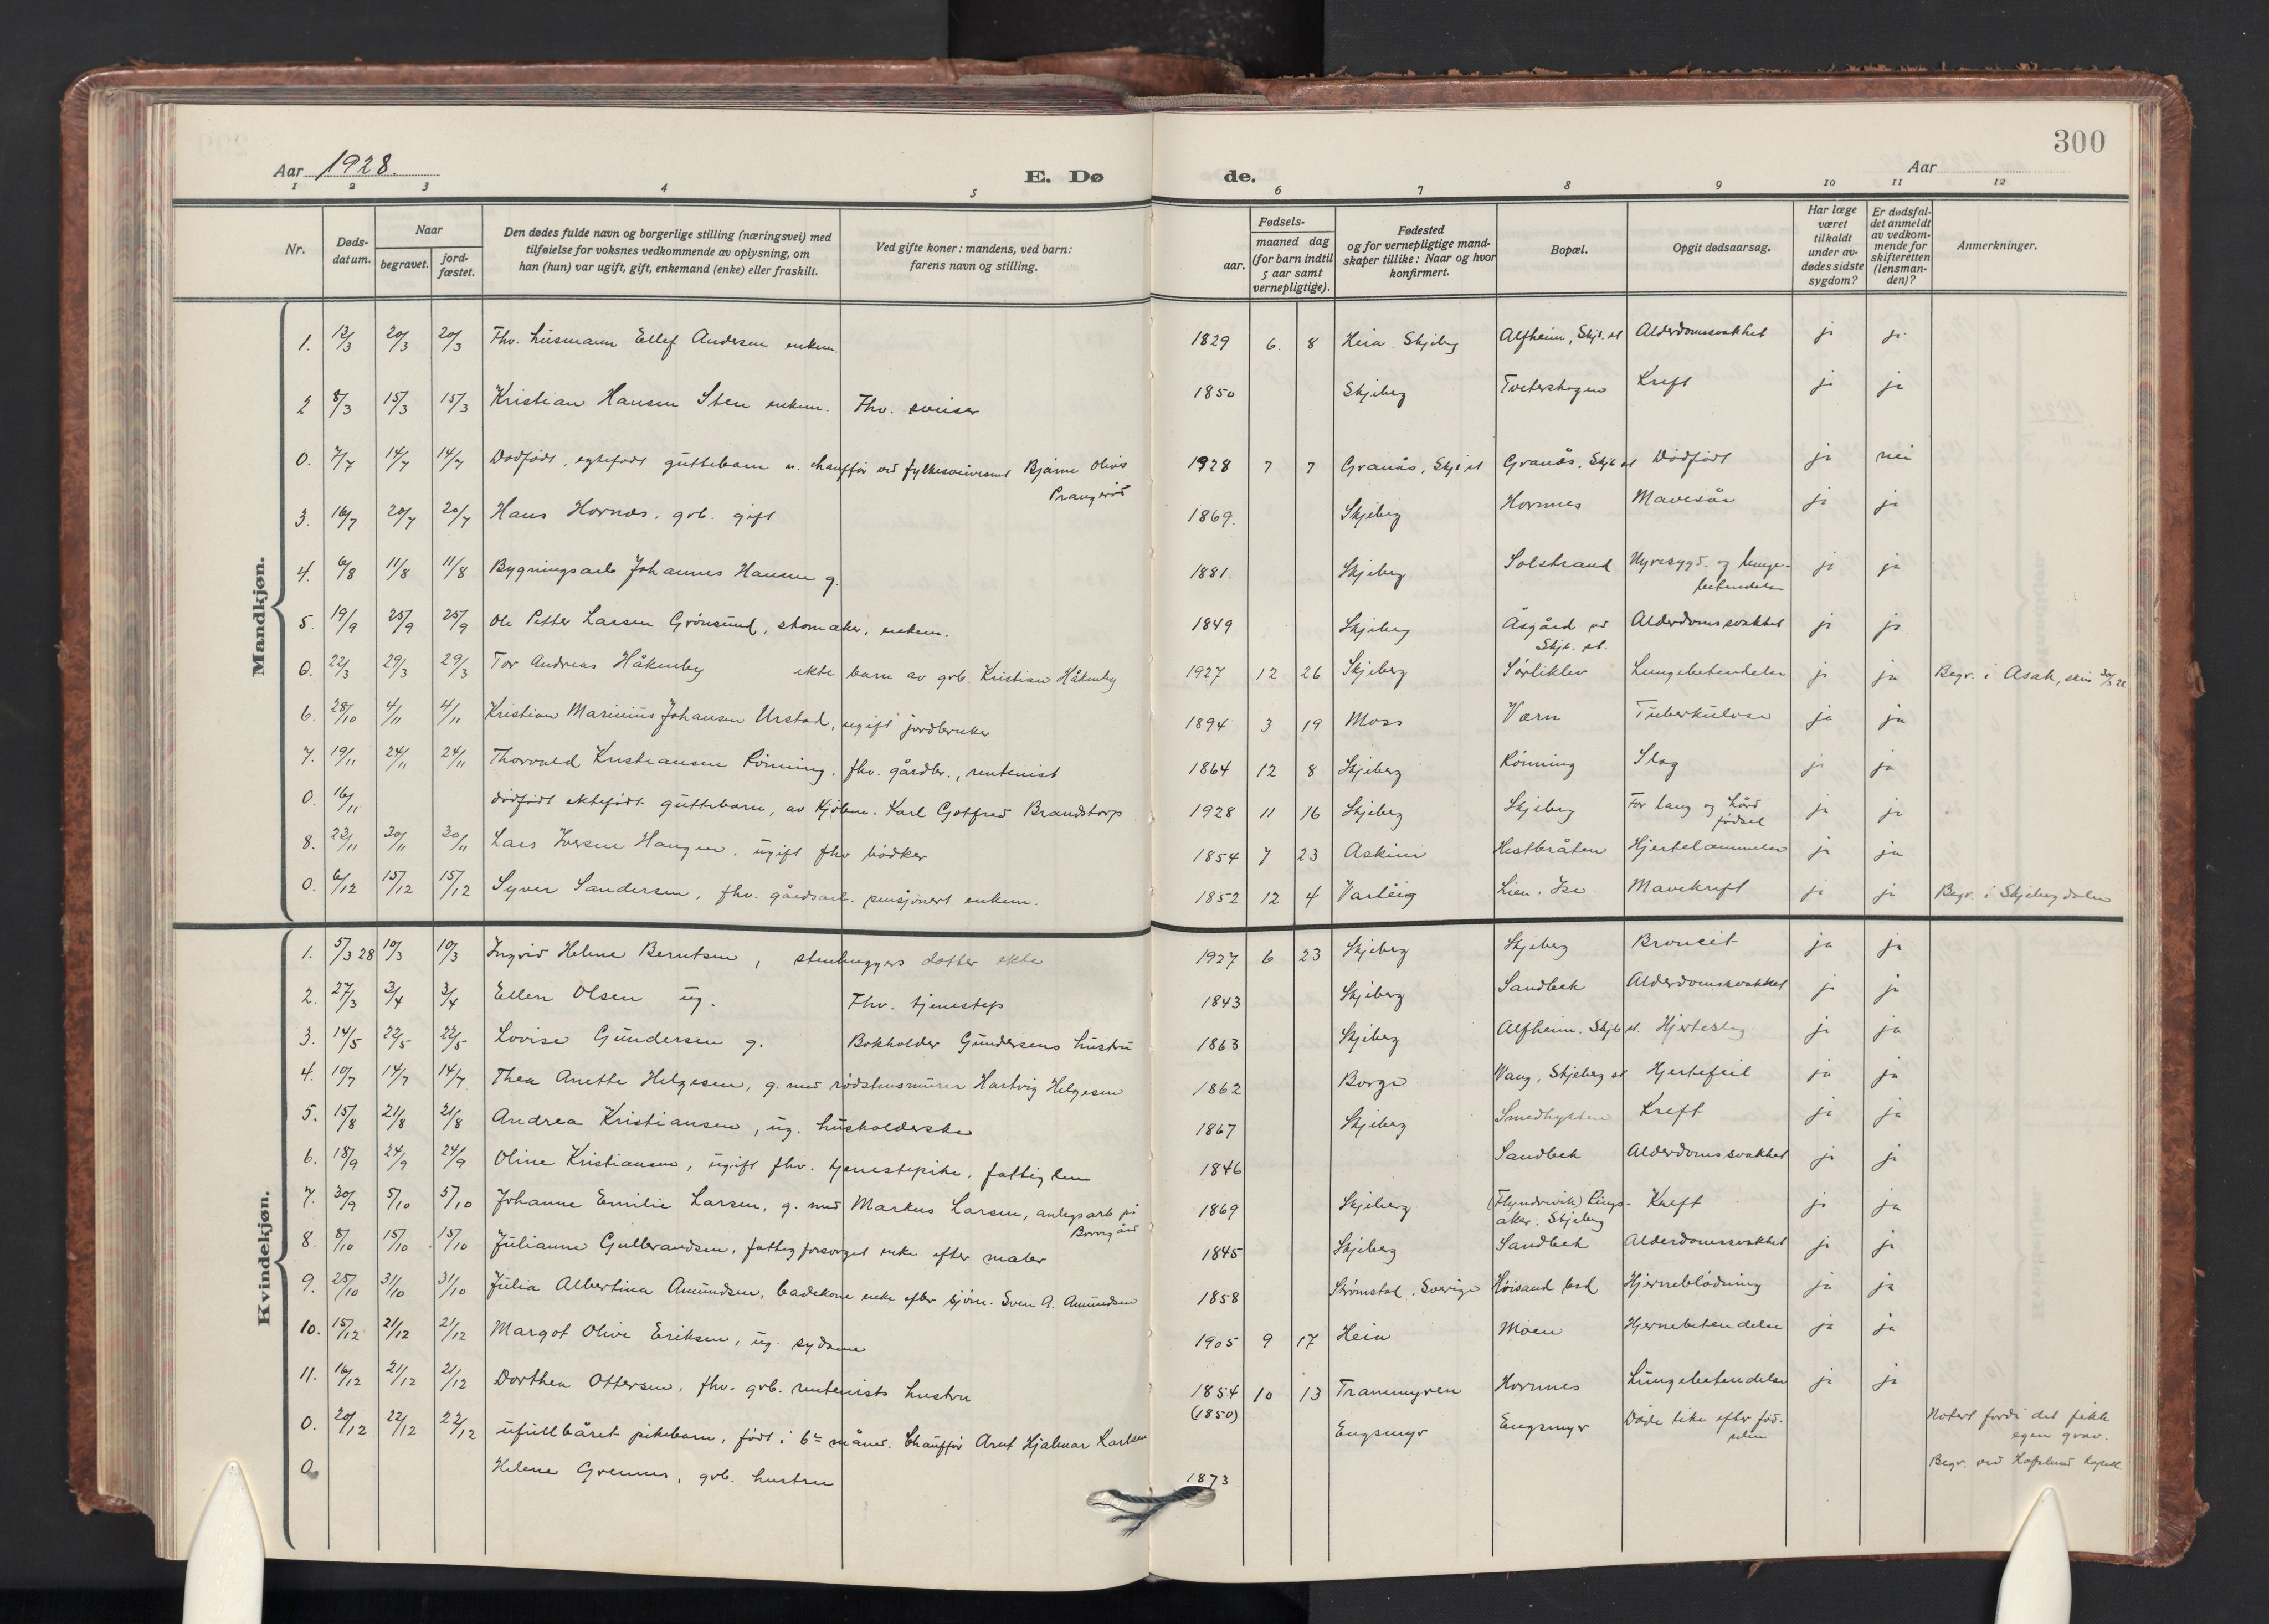 300
Aar 1928.
E. Dø
de.
Aar
1 2 3 4 5 6 7 8 9 10 11 12
Nr.
Døds-
datum.
Naar
begravet.
jord-
fæstet.
Den dødes fulde navn og borgerlige stilling (næringsvei) med
tilføielse for voksnes vedkommende av oplysning, om
han (hun) var ugift, gift, enkemand (enke) eller fraskilt.
Ved gifte koner: mandens, ved barn:
farens navn og stilling.
Fødsels-
aar.
maaned dag
(for barn indtil
5 aar samt
vernepligtige).
Fødested
og for vernepligtige mand-
skaper tillike: Naar og hvor
konfirmert.
Bopæl.
Opgit dødsaarsag.
Har læge
været
tilkaldt
under av-
dødes sidste
sygdom?
Er dødsfal-
det anmeldt
av vedkom-
mende for
skifteretten
(lensman-
den)?
Anmerkninger.
Mandkjøn.
1. 12/3 20/3 20/3 Fhv. husmann Ellef Andersen enkem. 1829 6. 8 Heia Skjeberg Alfheim, Skjb. st Alderdomssvakhet ja ja
2 8/3 15/3 15/3 Kristian Hansen Sten enkem. Fhv. 1850 Skjeberg Tveterhagen Kreft ja ja
0. 7/7 14/7 14/7 Dødfødt, egtefødt guttebarn chauffør ved Bjarne Olivs 1928 7 7 Granås, Skjb st Granås, Skjb st Dødfødt ja nei
Prangerød
3. 16/7 20/7 20/7 Hans Hornæs. grb. gift 1869. Skjeberg Hornnes Mavesår ja ja
4. 6/8 11/8 11/8 Bygningsarb Johannes Hansen g. 1881. Skjeberg Solstrand Nyresygd. og lunge-
betendelse ja ja
5. 19/9 25/9 25/9 Ole Petter Larsen Grønsund, skomaker, enkem. 1849 Skjeberg Åsgård ved
Skjb. st. Alderdomssvakhet ja ja
0. 22/3 29/3 29/3 Tor Andreas Håkenby ekte barn av grb. Kristian Håkenby 1927 12 26 Skjeberg Sørliklev Lungebetendelse ja ja Begr. i Asak,
6. 28/10 4/11 4/11 Kristian Marinius Johansen Urstad, ugift jordbruker 1894 3 19 Moss Værn Tuberkulose ja ja
7. 19/11 24/11 24/11 Thorvald Kristiansen Rønning, fhv. gårdbr., rentenist 1864 12 8 Skjeberg Rønning Slag ja ja
0. 16/11 dødfødt ektefødt guttebarn, av Kjøbm. Karl Gotfred Brandstorp 1928 11 16 Skjeberg Skjeberg For lang og hård
fødsel ja ja
8. 23/11 30/11 30/11 Lars Iversen Haugen, ugift fhv bødker 1854 7 23 Askim Hestbråten Hjertelammelse ja ja
0. 6/12 15/12 15/12 Syver Sandersen, fhv. gårdsarb. pensjonert enkem. 1852 12 4 Varteig Lien. Ise Mavekreft ja ja Begr. i Skjebergdalen
Kvindekjøn.
1. 5/3 28 10/3 10/3 Ingrid Helene Berntsen, stenhuggers datter ekte 1927 6 23 Skjeberg Skjeberg Broncit ja ja
2. 27/3 3/4 3/4 Ellen Olsen ug. Fhv. tjenestep 1843 Skjeberg Sandbek Alderdomssvakhet ja ja
3. 14/5 22/5 22/5 Lovise Gundersen g. Bokholder Gundersens hustru 1863 Skjeberg Alfheim. Skjb st. Hjerteslag ja ja
4. 10/7 14/7 14/7 Thea Anette Helgesen, g. med rødstensmurer Hartvig Helgesen 1862 Borge Vang, Skjeberg st Hjertefeil ja ja
5. 15/8 21/8 21/8 Andrea Kristiansen, ug. husholderske 1867 Skjeberg Smedhytten Kreft ja ja
6. 18/9 24/9 24/9 Oline Kristiansen, ugift fhv. tjenestepike. fattiglem 1846 Sandbek Alderdomssvakhet ja ja
7. 30/9 5/10 5/10 Johanne Emilie Larsen, g. med Markus Larsen, anlegsarb på
Borregård 1869 Skjeberg (Flyndrevik) Rings-
aker. Skjeberg Kreft ja ja
8. 8/10 15/10 15/10 Julianne Gulbrandsen, fattigforsorget enke efter maler 1845 Skjeberg Sandbek Alderdomssvakhet ja ja
9. 25/10 31/10 31/10 Julia Albertina Amundsen, badekone enke efter sjøm. Sven A. Amundsen 1858 Strømstad. Sverige Høisand bad Hjerneblødning ja ja
10. 15/12 21/12 21/12 Margot Olive Eriksen, ug. sydame 1905 9 17 Heia Moen Hjernebetendelse ja ja
11. 16/12 21/12 21/12 Dorthea Ottersen, fhv. grb. rentenists hustru 1854
(1850) 10 13 Tranmyren Hornnes Lungebetendelse ja ja
0. 20/12 22/12 22/12 ufullbåret pikebarn, født i 6te måned. Chauffør Arnt Hjalmar Karlsen Engsmyr Engsmyr Døde like efter fød-
selen Notert fordi det fikk
egen grav.
0 Helene Grennes, grb. hustru 1873 Begr. ved Hafslund kapell.